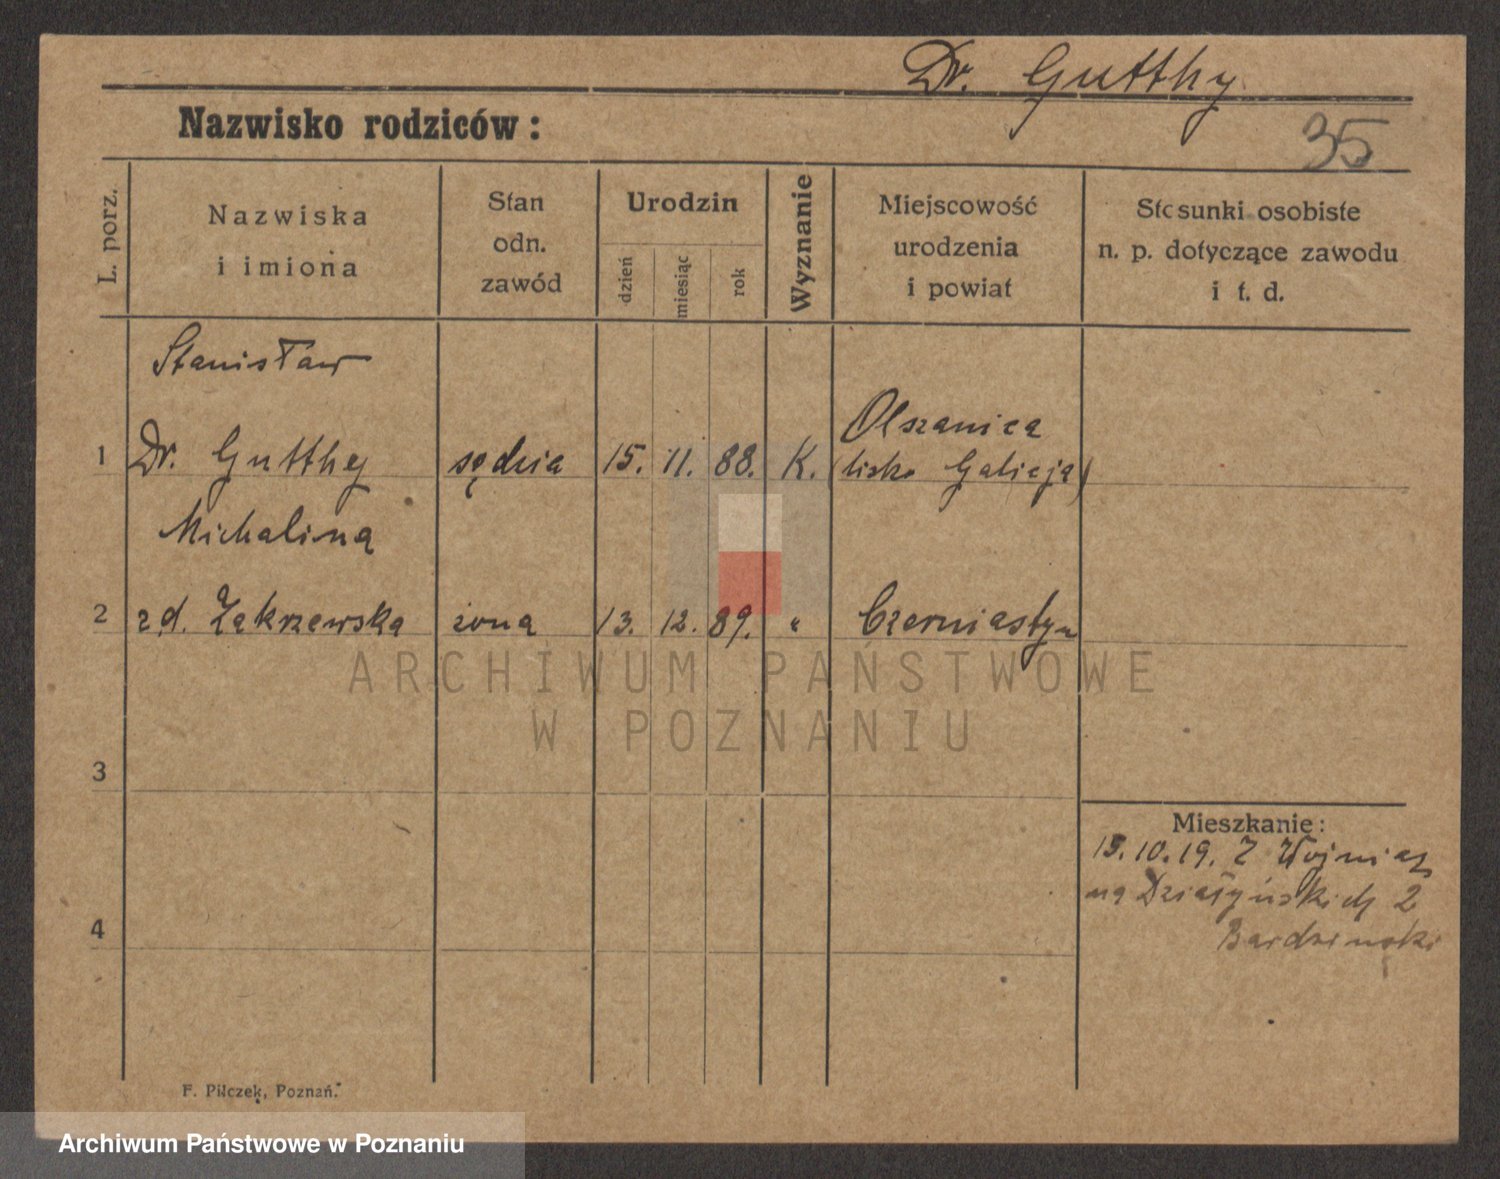 Dr. Gutthy
Nazwisko rodziców:
35
L. porz.
Nazwiska
i imiona
Stan
odn.
zawód
Urodzin
dzień
miesiąc
rok
Wyznanie
Miejscowość
urodzenia
i powiat
Stosunki osobiste
n. p. dotyczące zawodu
i t. d.
Stanisław
Olszanica
1 Dr. Gutthy sędzia 15. 11. 88. K. (lisko Galicja)
Michalina
2 zd. Zakrzewska żona 13. 12. 89. "
ARCHIWUM PAŃSTWOWE
W POZNANIU
3
Mieszkanie:
15.10.19. Z
na Działyńskich 2
4
Bardziński
F. Pilczek, Poznań.
Archiwum Państwowe w Poznaniu